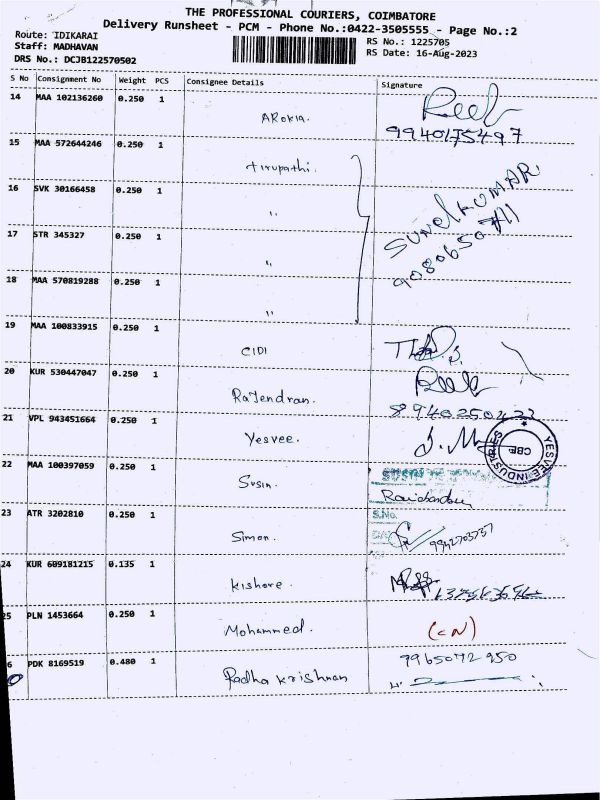 THE PROFESSIONAL COURIERS, COIMBATORE
Delivery Runsheet - PCM - Phone No.:0422-3505555 - Page No.:2
Route: IDIKARAI
Staff: MADHAVAN
DRS No.: DCJB122570502
RS No.: 1225705
RS Date: 16-Aug-2023
S No Consignment No Weight PCS Consignee Details Signature
14 MAA 102136260 0.250 1 AROKIA.
9940175497
15 MAA 572644246 0.250 1 tirupathi.
16 SVK 30166458 0.250 1 "
SUNDKUMAR
9080650711
17 STR 345327 0.250 1 "
18 MAA 570819288 0.250 1 "
19 MAA 100833915 0.250 1 CIDI
20 KUR 530447047 0.250 1 Rajendran.
8940250422
21 VPL 943451664 0.250 1 Yesvee.
YESVEE INDUSTRIES
CBE
22 MAA 100397059 0.250 1 Susin.
SUSIN
S.No.
23 ATR 3202810 0.250 1 Simon.
9942703737
24 KUR 609181215 0.135 1 Kishore.
25 PLN 1453664 0.250 1 Mohammed.
(CN)
6 PDK 8169519 0.480 1 Radha Krishnan
7965072950